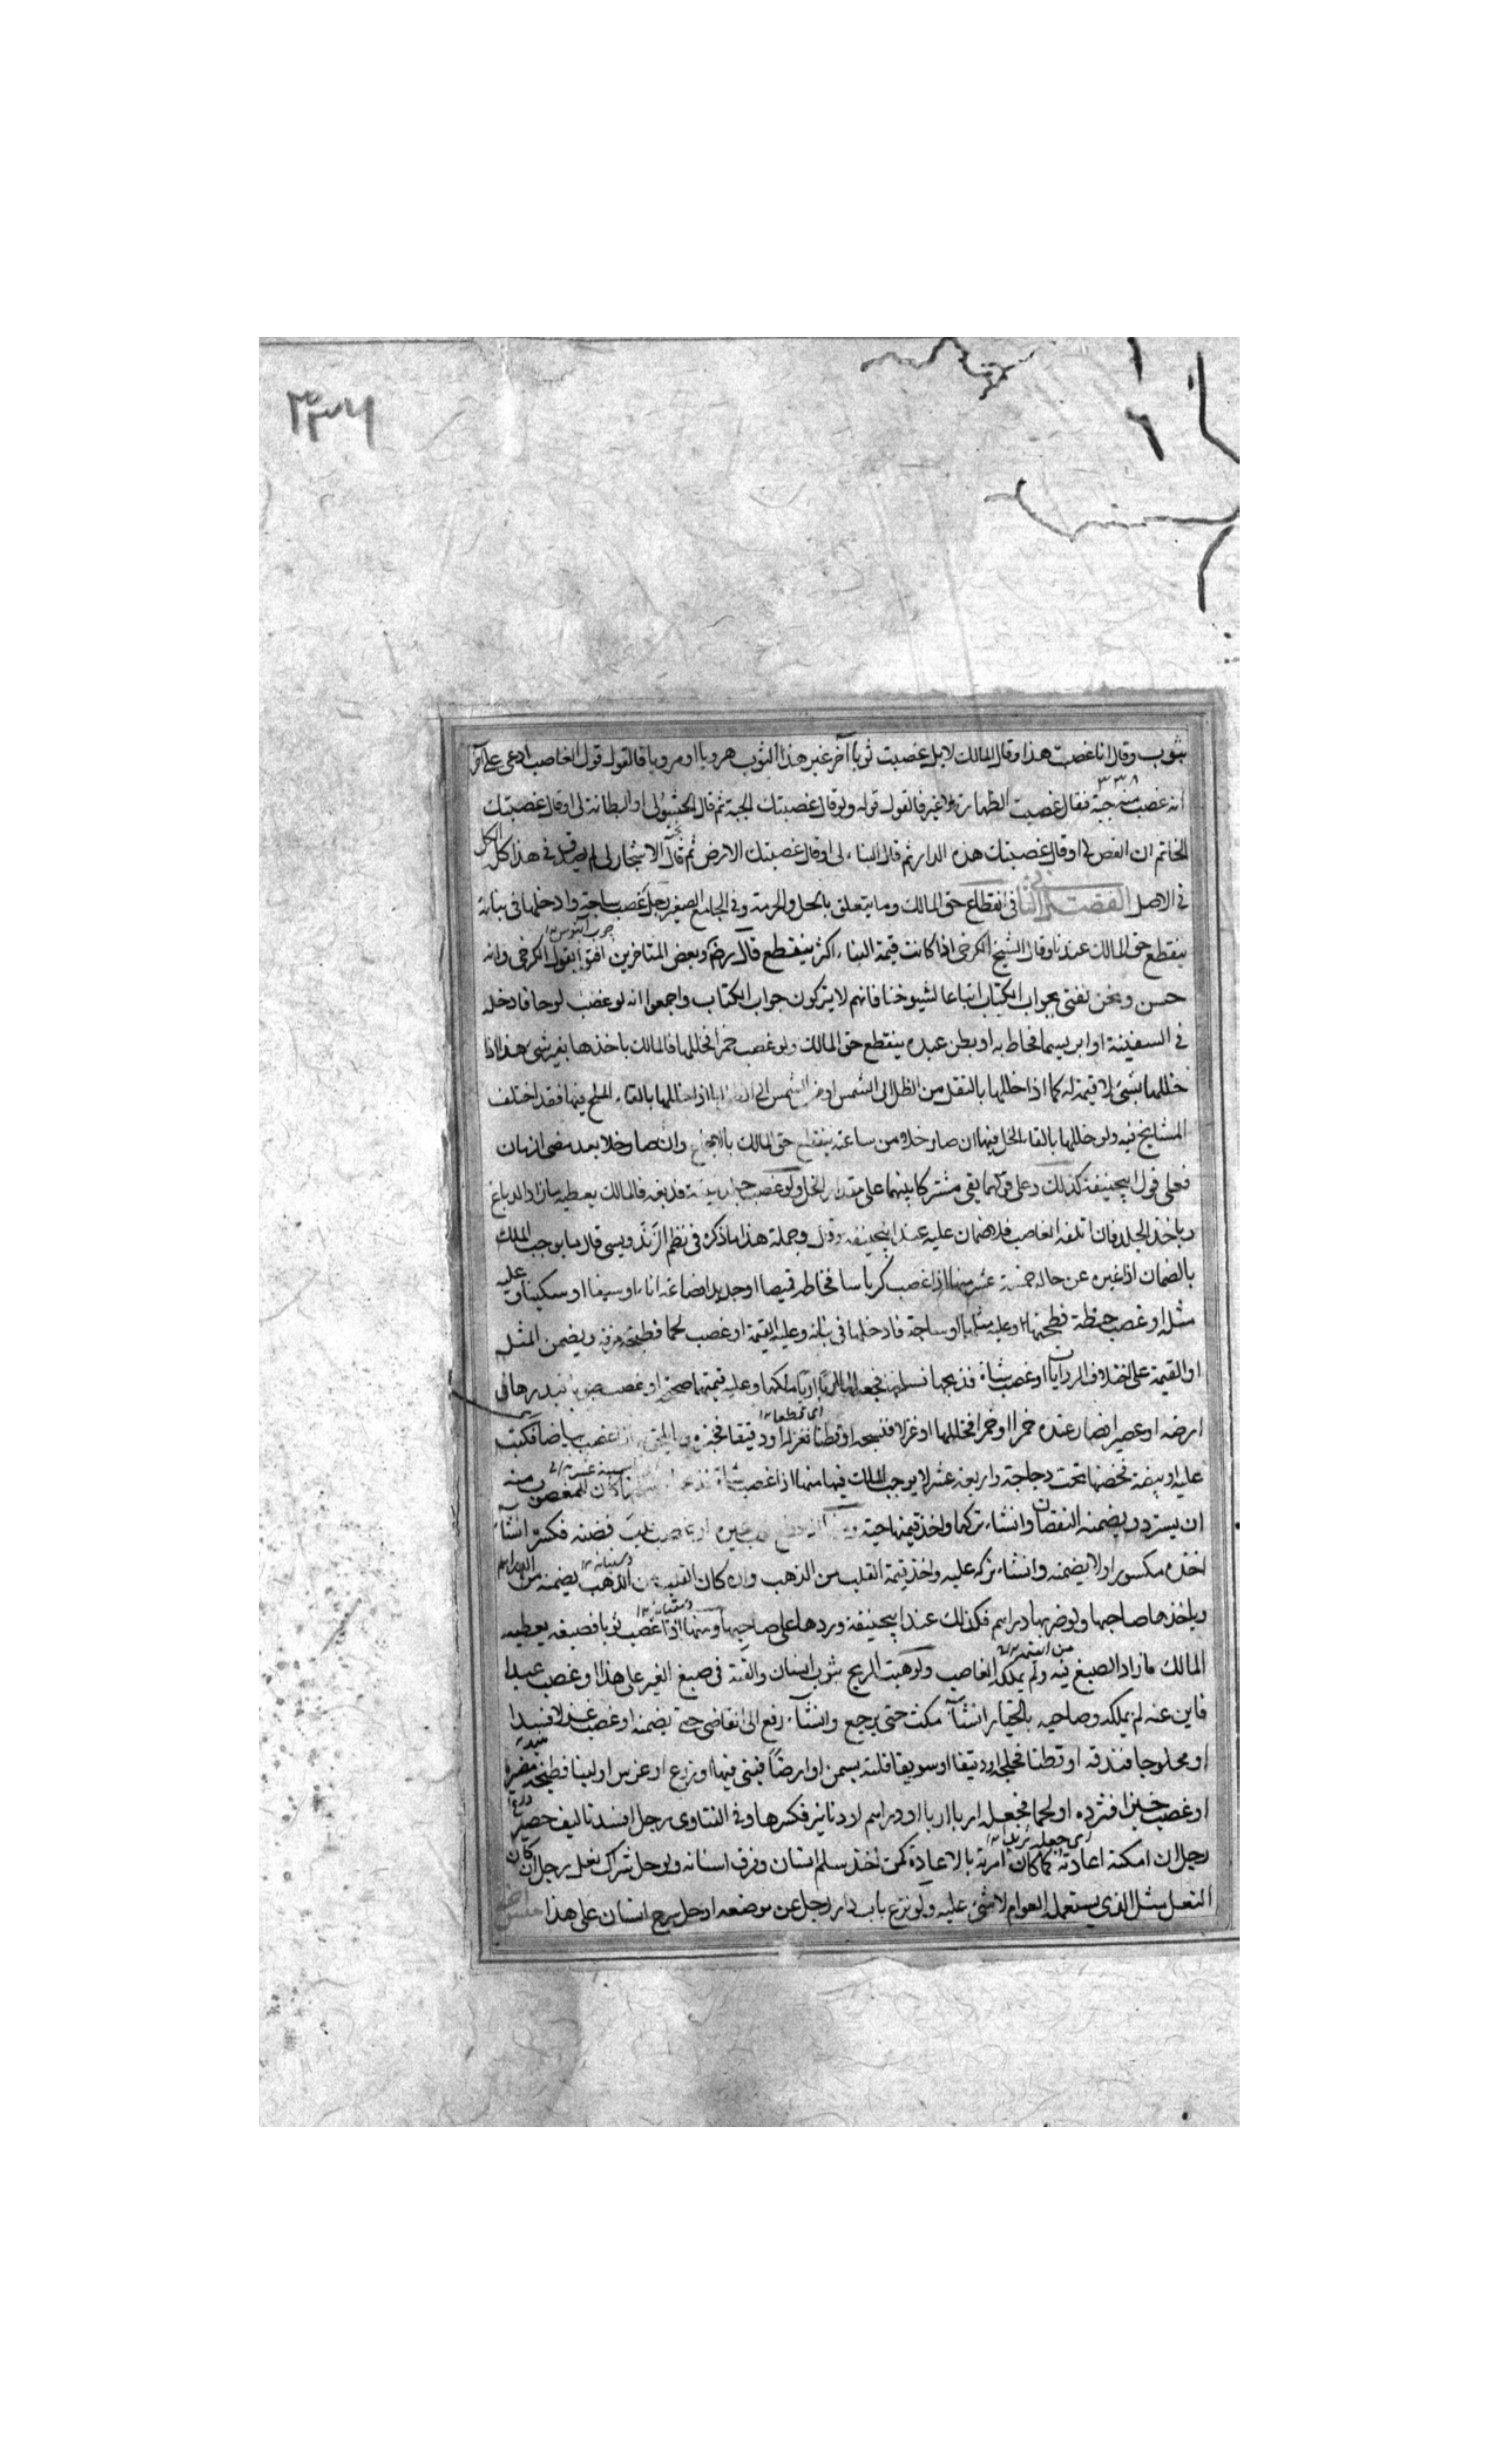 ۳۳۶
بثوب وقال انا غصبت هذا وقال المالك لا بل غصبت ثوباً آخر غير هذا الثوب هرويا او مرويا فالقول قول الغاصب ادعى على آخر
۳۳۸
انه غصب منه جبة فقال غصبت الظهارة لا غير فالقول قوله ولو قال غصبتك الجبة ثم قال الحشو لى او البطانة لى او قال غصبتك
الخاتم ان الفص لى او قال غصبتك هذه الدار ثم قال البناء لى او قال غصبتك الارض ثم قال الاشجار لى لم يصدق فى هذا كل الكل
فى الاصل الفصل الثانى فى انقطاع حق المالك وما يتعلق بالحل والحرمة وفى الجامع الصغير رجل غصب ساجة وادخلها فى بنائه
ينقطع حق المالك عندنا وقال الشيخ الكرخى اذا كانت قيمة البناء اكثر ينقطع قال رضى وبعض المتاخرين افتوا بقول الكرخى وانه
حسن ونحن نفتى بجواب الكتاب اتباعا لشيوخنا فانهم لا يتركون جواب الكتاب واجمعوا انه لو غصب لوحا فادخله
فى السفينة او ابريسما فخاط به او بطن عبده ينقطع حق المالك ولو غصب خمرا فخللها فالمالك ياخذها بغير شئ هذا اذا
خللها بشئ لا قيمة له كما اذا خللها بالنقل من الظل الى الشمس او من الشمس الى الظل اما اذا خللها بالقاء الملح فيها فقد اختلف
المشايخ فيه ولو خللها بالقاء الخل فيها ان صار خلا من ساعته ينقطع حق المالك بالاجماع وان صار خلا بعد مضى ازمان
فعلى قول ابيحنيفة كذلك وعلى قولهما بقى مشتركا بينهما على مقدار الخل ولو غصب جلد فدبغه فالمالك يعطيه ما زاد الدباغ
وياخذ الجلد فان اتلفه الغاصب فلا ضمان عليه عند ابيحنيفة وجملة هذا ما ذكر فى نظم الزندويسى قال ما يوجب الملك
بالضمان اذا غيره عن حاله خمسة عشر منها اذا غصب كرباسا فخاطه قميصا او حديدا فصاغه اناء او سيفا او سكينا وعليه
مثله او غصب حنطة فطحنها وعليه مثلها او ساجة فادخلها فى بنائه وعليه القيمة او غصب لحما فطبخه مرقة ويضمن المثل
او القيمة على اختلاف الروايات او غصب شاة فذبحها فسلخها فجعلها اربا اربا ملكها وعليه قيمتها صحيحة او غصب فبذرها فى
ارضه او عصيرا فصار عنده خمرا او خمرا فخللها او غزلا فنسجه او قطنا فغزله او دقيقا فخبزه غصب بياضا فكتب
عليه او بيضة فحضنها تحت دجاجة واربعة عشر لا يوجب الملك فيها منها اذا غصب شاة كان للمغصوب منه
ان يسترد ويضمنه النقصان وان شاء تركها واخذ قيمتها حية قلب فضة فكسر ان شاء
اخذه مكسورا ولا يضمنه وان شاء تركه عليه واخذ قيمة القلب من الذهب وان كان القلب من الذهب يضمنه من الدراهم
وياخذها صاحبها ولو ضربها دراهم فكذلك عند ابيحنيفة وردها على صاحبها ومنها اذا غصب ثوبا فصبغه يعطيه
المالك ما زاد الصبغ فيه ولم يملكه الغاصب ولو هبت الريح بثوب انسان والقته فى صبغ الغير على هذا او غصب عبدا
فابق عنه لم يملكه وصاحبه بالخيار ان شاء مكث حتى يرجع وان شاء رفع الى القاضى حتى يضمنه او غصب غزلا فسدا
او محلوجا فندفه او قطنا فحلجه او دقيقا او سويقا فلته بسمن او ارضا فبنى فيها او زرع او غرس او لبنا فطبخه مضيرة
او غصب خبزا فثرده او لحما فجعله اربا اربا او دراهم او دنانير فكسرها وفى الفتاوى رجل افسد تاليف حصير
رجل ان امكنه اعادته كما كان امر به بالاعادة كمن اخذ سلم انسان وفرق اسنانه ولو حل شراك نعل رجل ان كان
النعل مثل الذى يستعمله العوام لا شئ عليه ولو نزع باب دار رجل عن موضعه او حل سرج انسان على هذا